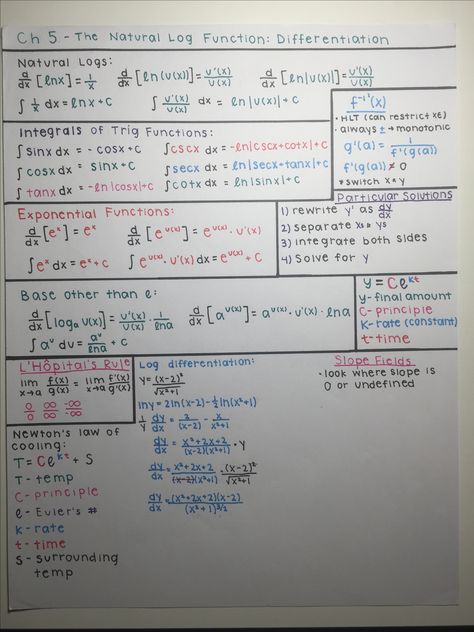 Ch 5 - The Natural Log Function: Differentiation
Natural Logs:
d/dx [lnx] = 1/x   d/dx [ln(u(x))] = u'(x)/u(x)   d/dx [ln|u(x)|] = u'(x)/u(x)
∫ 1/x dx = lnx + C   ∫ u'(x)/u(x) dx = ln|u(x)| + C
f⁻¹(x)
• HLT (can restrict xε)
• always ± → monotonic
g'(a) = 1/f'(g(a))
f'(g(a)) ≠ 0
*switch x & y
Integrals of Trig Functions:
∫sinx dx = -cosx + C   ∫cscx dx = -ln|cscx+cotx| + C
∫cosx dx = sinx + C   ∫secx dx = ln|secx+tanx| + C
∫tanx dx = -ln|cosx| + C   ∫cotx dx = ln|sinx| + C
Particular Solutions
1) rewrite y' as dy/dx
2) separate xs & ys
3) integrate both sides
4) solve for y
Exponential Functions:
d/dx [eˣ] = eˣ   d/dx [e^u(x)] = e^u(x) · u'(x)
∫eˣ dx = eˣ + C   ∫e^u(x) · u'(x) dx = e^u(x) + C
Base other than e:
d/dx [logₐ u(x)] = u'(x)/u(x) · 1/lna   d/dx [a^u(x)] = a^u(x) · u'(x) · lna
∫aᵘ du = aᵘ/lna + C
y = Ce^kt
y - final amount
C - principle
K - rate (constant)
t - time
L'Hôpital's Rule
lim x→a f(x)/g(x) = lim x→a f'(x)/g'(x)
0/0 ∞/∞ -∞/-∞
Log differentiation:
y = (x-2)²/√(x²+1)
lny = 2ln(x-2) - ½ln(x²+1)
1/y dy/dx = 2/(x-2) - x/(x²+1)
dy/dx = x²+2x+2/(x-2)(x²+1) · y
dy/dx = x²+2x+2/(x-2)(x²+1) · (x-2)²/√(x²+1)
dy/dx = (x²+2x+2)(x-2)/(x²+1)^3/2
Slope Fields
• look where slope is
0 or undefined
Newton's law of
cooling:
T = Ce^kt + S
T - temp
C - principle
e - Euler's #
K - rate
t - time
S - surrounding
temp